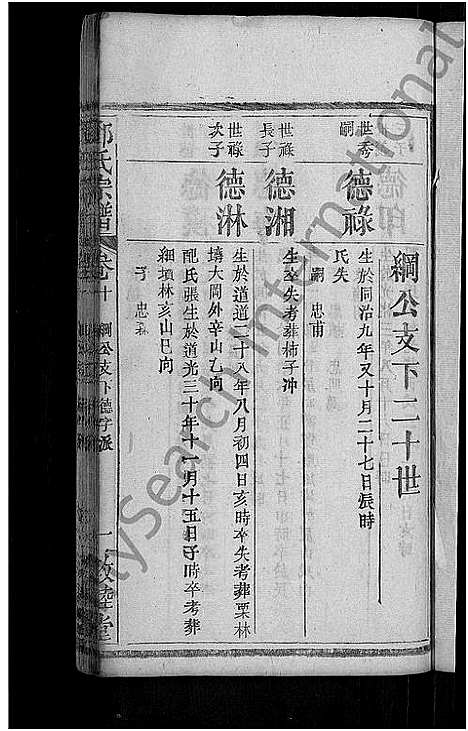 綱公支下二十世
世秀
嗣
德祿
生於同治九年又十月二十七日辰時
氏失
嗣 忠甫
世祿
長子
德湘
生卒失考葬柿子冲
世祿
次子
德淋
生於道道二十八年八月初四日亥時卒失考葬栗林
塆大岡外辛山乙向
配氏張生於道光三十年十一月十五日子時卒考葬
細塤林亥山巳向
子 忠
氏宗譜
卷十
綱公支下德字派
一
敦睦堂
MySearch International